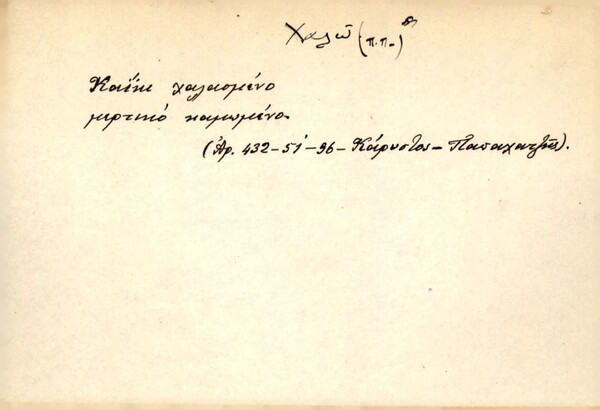 Χαλῶ (π.π.)
Καΐκι χαλασμένο
μερτικό καμωμένο.
(Ἀρ. 432-51-96- Κάρυστος- Παπαχατζῆς).